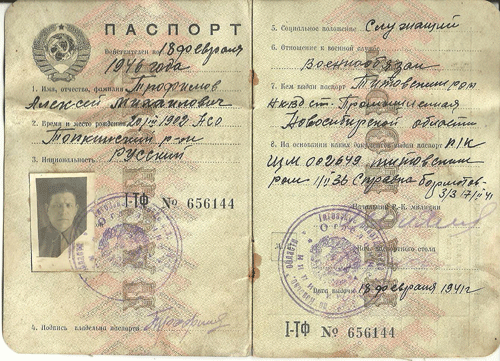 ПАСПОРТ
Действителен по 18 февраля
1946 года
1. Имя, отчество, фамилия Трофимов
Алексей Михайлович
2. Время и место рождения 20/III 1902 НСО
Топкинский р-он
3. Национальность Русский
I-ТФ № 656144
4. Подпись владельца паспорта
5. Социальное положение Служащий
6. Отношение к военной службе
Военнообязан
7. Кем выдан паспорт Титовским ром
НКВД ст. Промышленная
Новосибирской области
8. На основании каких документов выдан паспорт п/к
ЩМ 002649 титовским
ром Справка
Начальник Р.-К. милиции
Нач. паспортного стола
18 февраля 1941 г
I-ТФ № 656144